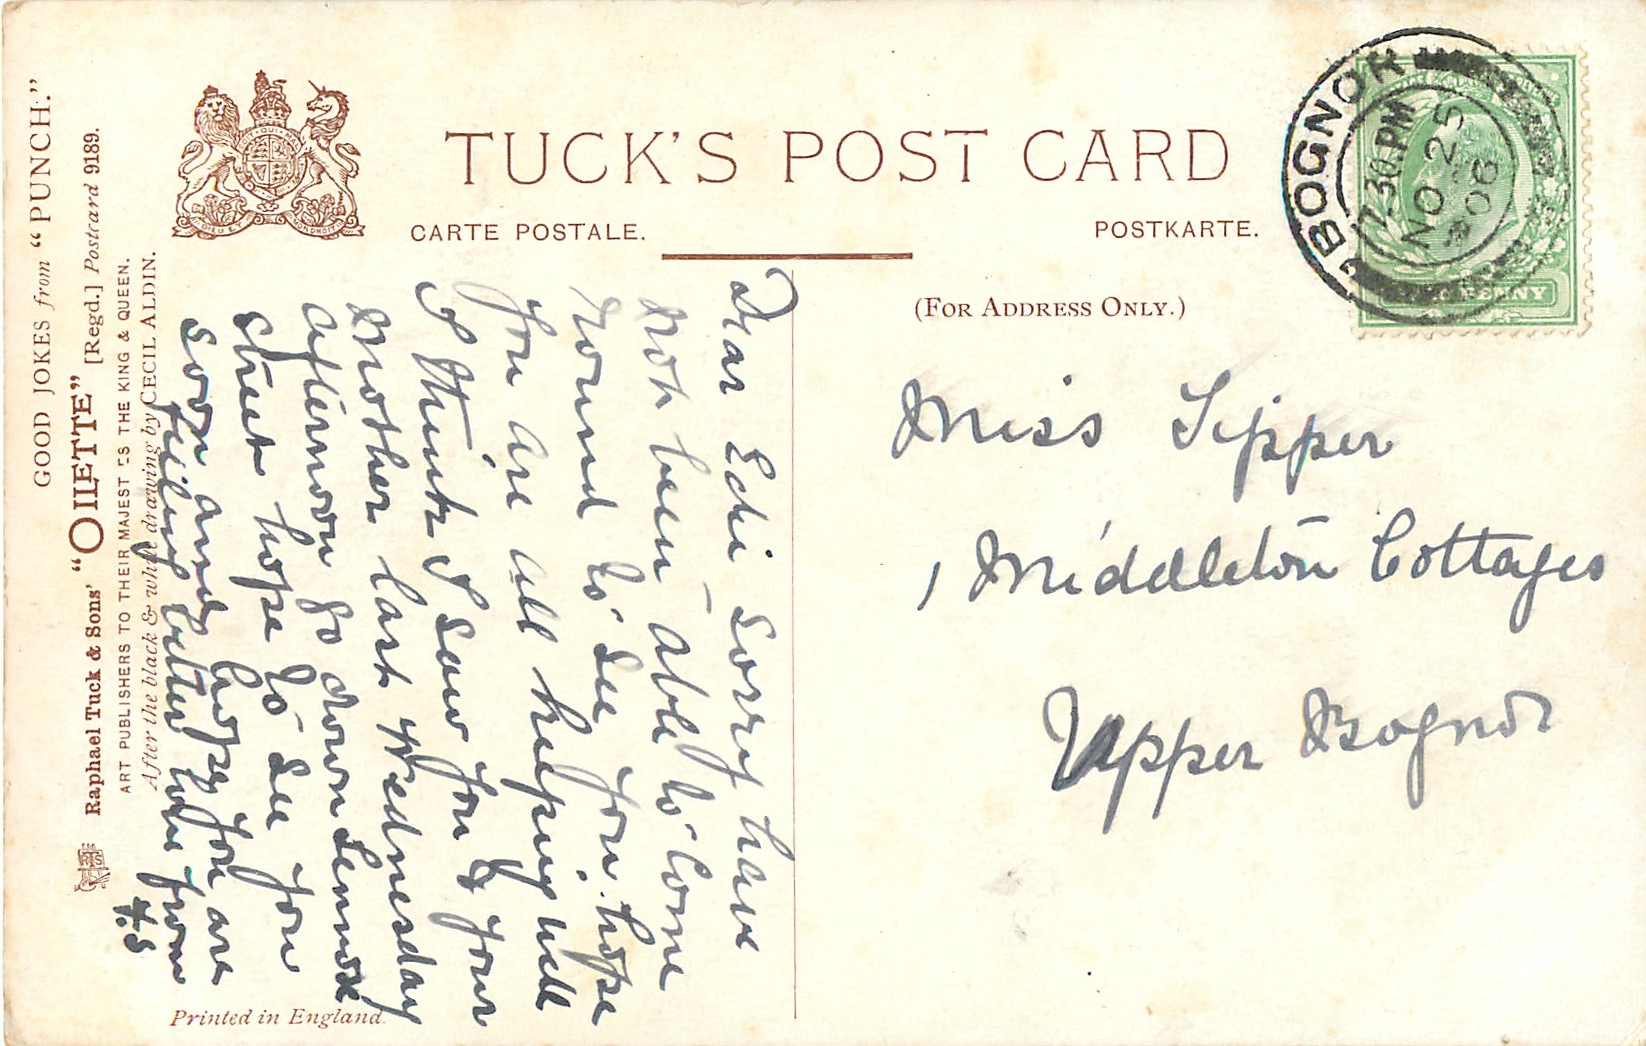 GOOD JOKES from "PUNCH."
"OILETTE" [Regd.] Postcard 9189.
Raphael Tuck & Sons'
ART PUBLISHERS TO THEIR MAJESTIES THE KING & QUEEN.
After the black & white drawing by CECIL ALDIN.
DIEU ET MON DROIT
TUCK'S POST CARD
CARTE POSTALE.
POSTKARTE.
(FOR ADDRESS ONLY.)
BOGNOR
7.30 PM
NO 25
06
Dear Edi Sorry have
not been able to Come
round to see you. hope
you are all keeping well
I think I saw you & your
Mother last Wednesday
afternoon go down Lennox
Street hope to see you
soon and hope you are
feeling better love from
F.S
Miss Tipper
1 Middleton Cottages
Upper Bognor
Printed in England.